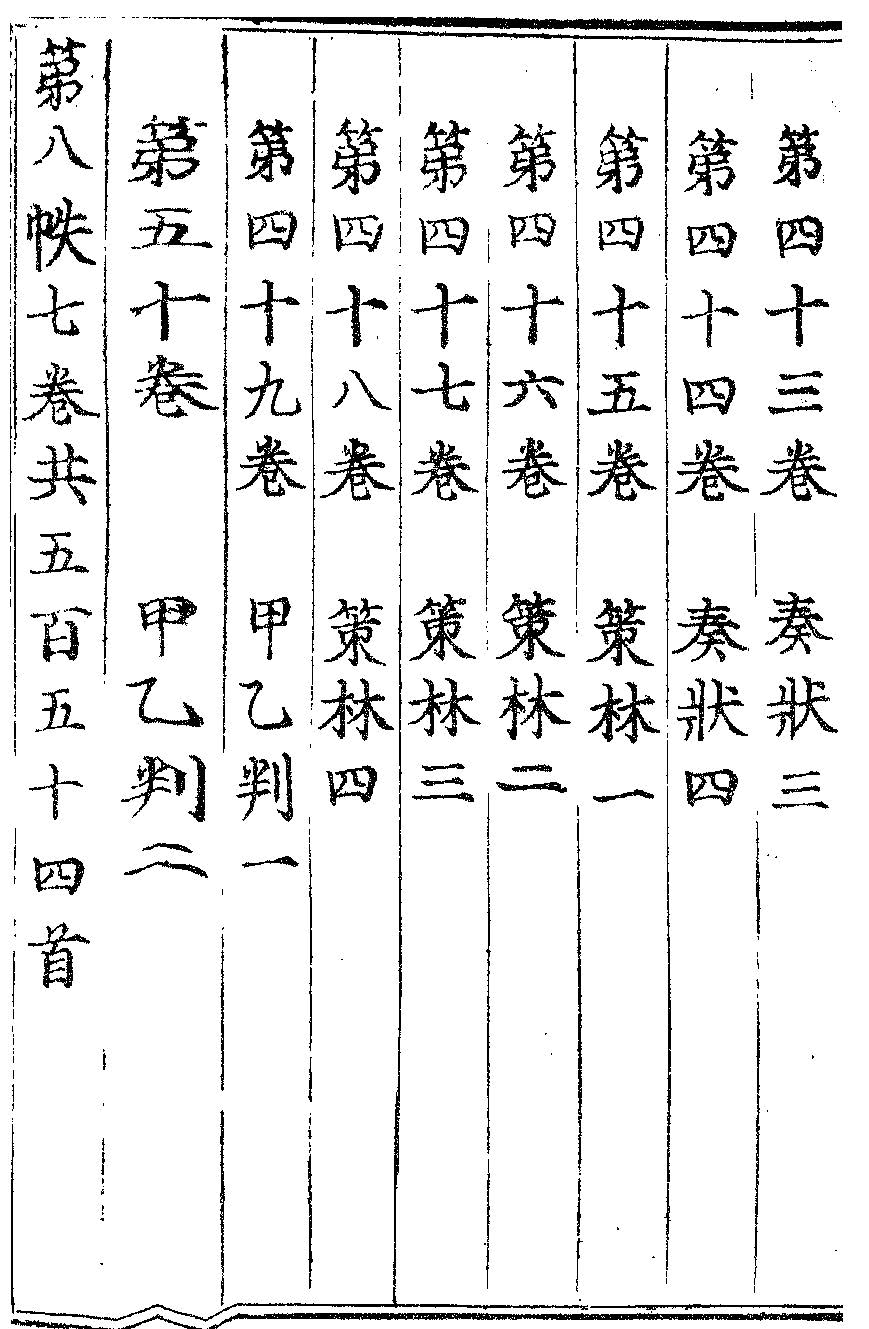 第四十三卷　奏狀三
第四十四卷　奏狀四
第四十五卷　策林一
第四十六卷　策林二
第四十七卷　策林三
第四十八卷　策林四
第四十九卷　甲乙判一
第五十卷　甲乙判二
第八帙七卷共五百五十四首